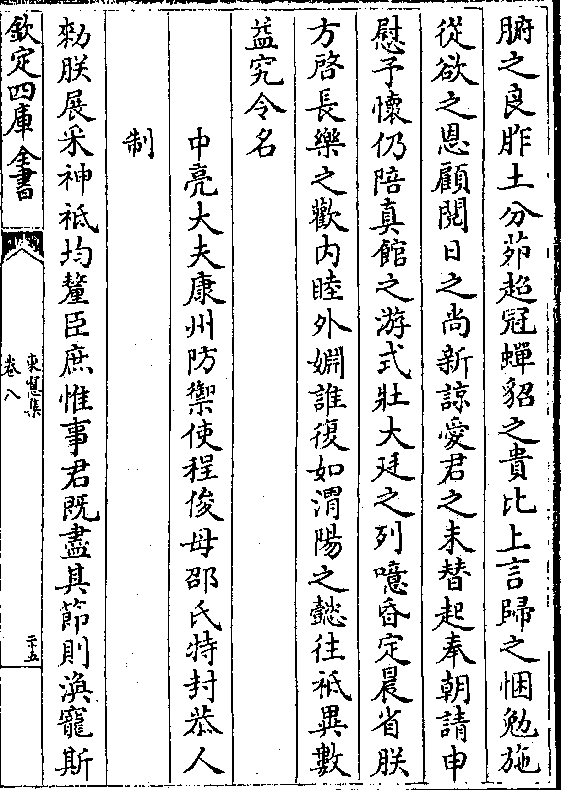 腑之良胙土分茆超冠蟬貂之貴比上言歸之悃勉施
從欲之恩顧閱日之尚新諒愛君之未替起奉朝請申
慰予懷仍陪真館之游式壯大廷之列噫昏定晨省朕
方啓長樂之歡内睦外婣誰復如渭陽之懿往祗異數
益究令名
中亮大夫康州防禦使程俊母邵氏特封恭人
制
勑朕展采神祗均釐臣庶惟事君既盡其節則渙寵斯
欽定四庫全書
東牕集
卷八
二十五